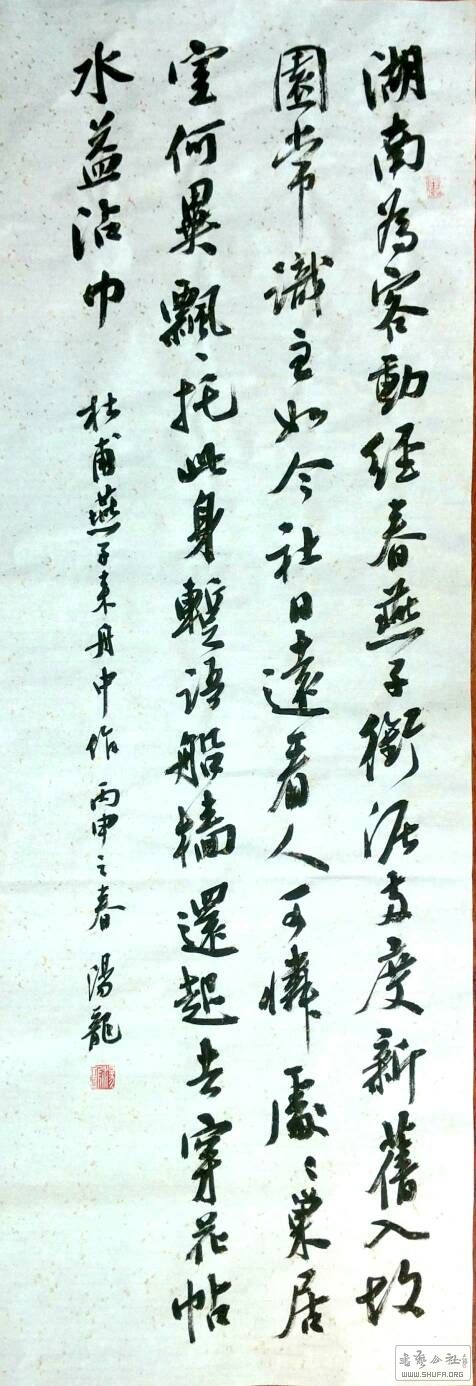 湖南為客動經春燕子銜泥兩度新舊入故
園常識主如今社日遠看人可憐處〻巢居
室何異飄〻托此身暫語船檣還起去穿花帖
水益沾巾
杜甫燕子來舟中作 丙申之春 湯龍
书艺公社
WWW.SHUFA.ORG